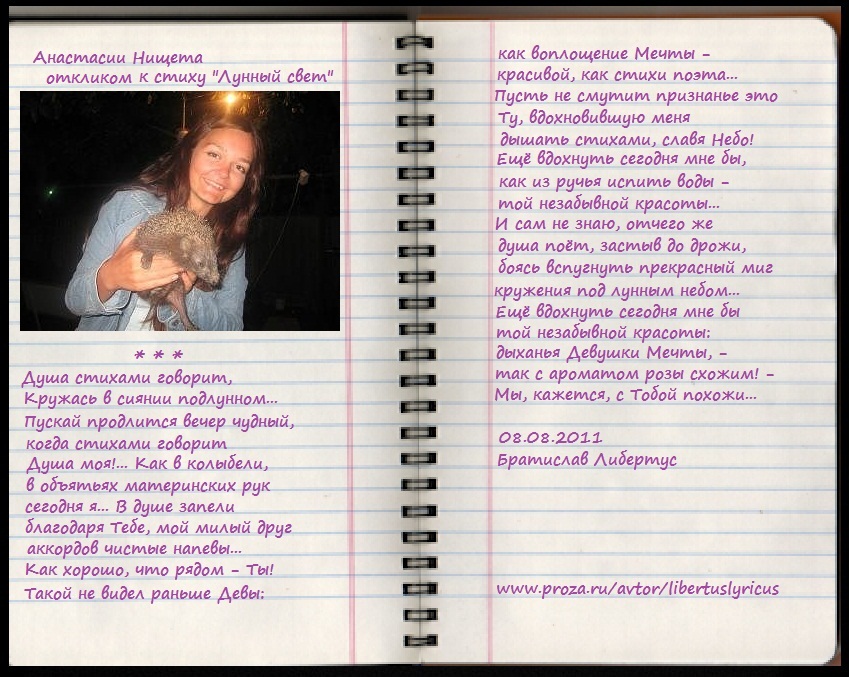 Анастасии Нищета
откликом к стиху "Лунный свет"
* * *
Душа стихами говорит,
Кружась в сиянии подлунном...
Пускай продлится вечер чудный,
когда стихами говорит
Душа моя!... Как в колыбели,
в объятьях материнских рук
сегодня я... В душе запели
благодаря Тебе, мой милый друг
аккордов чистые напевы...
Как хорошо, что рядом - Ты!
Такой не видел раньше Девы:
как воплощение Мечты -
красивой, как стихи поэта...
Пусть не смутит признанье это
Ту, вдохновившую меня
дышать стихами, славя Небо!
Ещё вдохнуть сегодня мне бы,
как из ручья испить воды -
той незабывной красоты...
И сам не знаю, отчего же
душа поёт, застыв до дрожи,
боясь вспугнуть прекрасный миг
кружения под лунным небом...
Ещё вдохнуть сегодня мне бы
той незабывной красоты:
дыханья Девушки Мечты, -
так с ароматом розы схожим! -
Мы, кажется, с Тобой похожи...
08.08.2011
Братислав Либертус
www.proza.ru/avtor/libertuslyricus